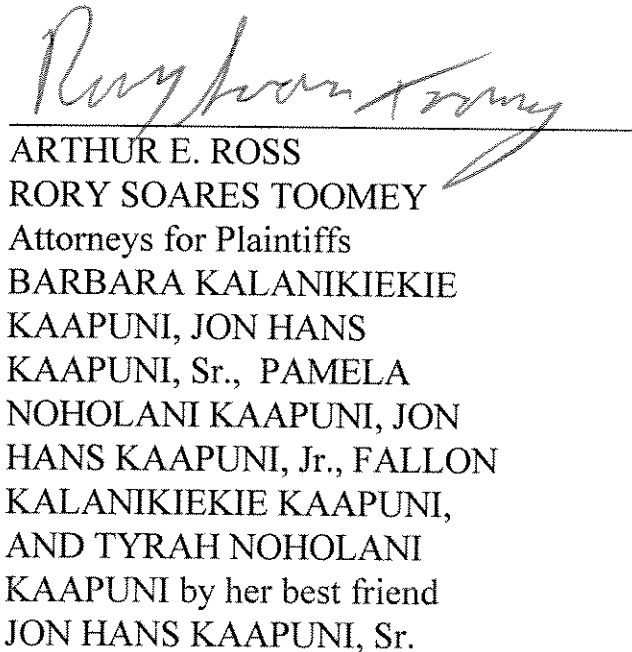 Rory Soares Toomey
ARTHUR E. ROSS
RORY SOARES TOOMEY
Attorneys for Plaintiffs
BARBARA KALANIKIEKIE
KAAPUNI, JON HANS
KAAPUNI, Sr., PAMELA
NOHOLANI KAAPUNI, JON
HANS KAAPUNI, Jr., FALLON
KALANIKIEKIE KAAPUNI,
AND TYRAH NOHOLANI
KAAPUNI by her best friend
JON HANS KAAPUNI, Sr.